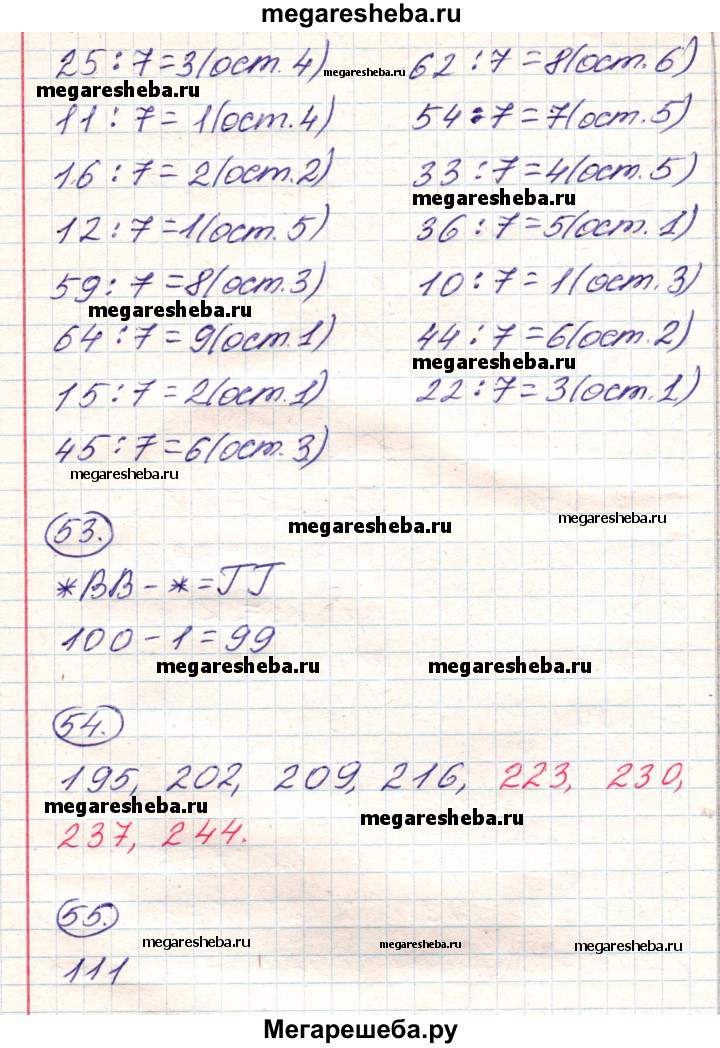 megaresheba.ru
25 : 7 = 3(ост. 4) megaresheba.ru 62 : 7 = 8(ост. 6)
megaresheba.ru
11 : 7 = 1(ост. 4) 54 : 7 = 7(ост. 5)
16 : 7 = 2(ост. 2) 33 : 7 = 4(ост. 5)
megaresheba.ru
12 : 7 = 1(ост. 5) 36 : 7 = 5(ост. 1)
59 : 7 = 8(ост. 3) 10 : 7 = 1(ост. 3)
megaresheba.ru
64 : 7 = 9(ост. 1) 44 : 7 = 6(ост. 2)
megaresheba.ru
15 : 7 = 2(ост. 1) 22 : 7 = 3(ост. 1)
45 : 7 = 6(ост. 3)
megaresheba.ru
53. megaresheba.ru megaresheba.ru
*ВВ - * = ГГ
100 - 1 = 99
megaresheba.ru megaresheba.ru
54. megaresheba.ru
195, 202, 209, 216, 223, 230,
megaresheba.ru megaresheba.ru
237, 244.
55.
megaresheba.ru megaresheba.ru megaresheba.ru
111
Мегарешеба.ру